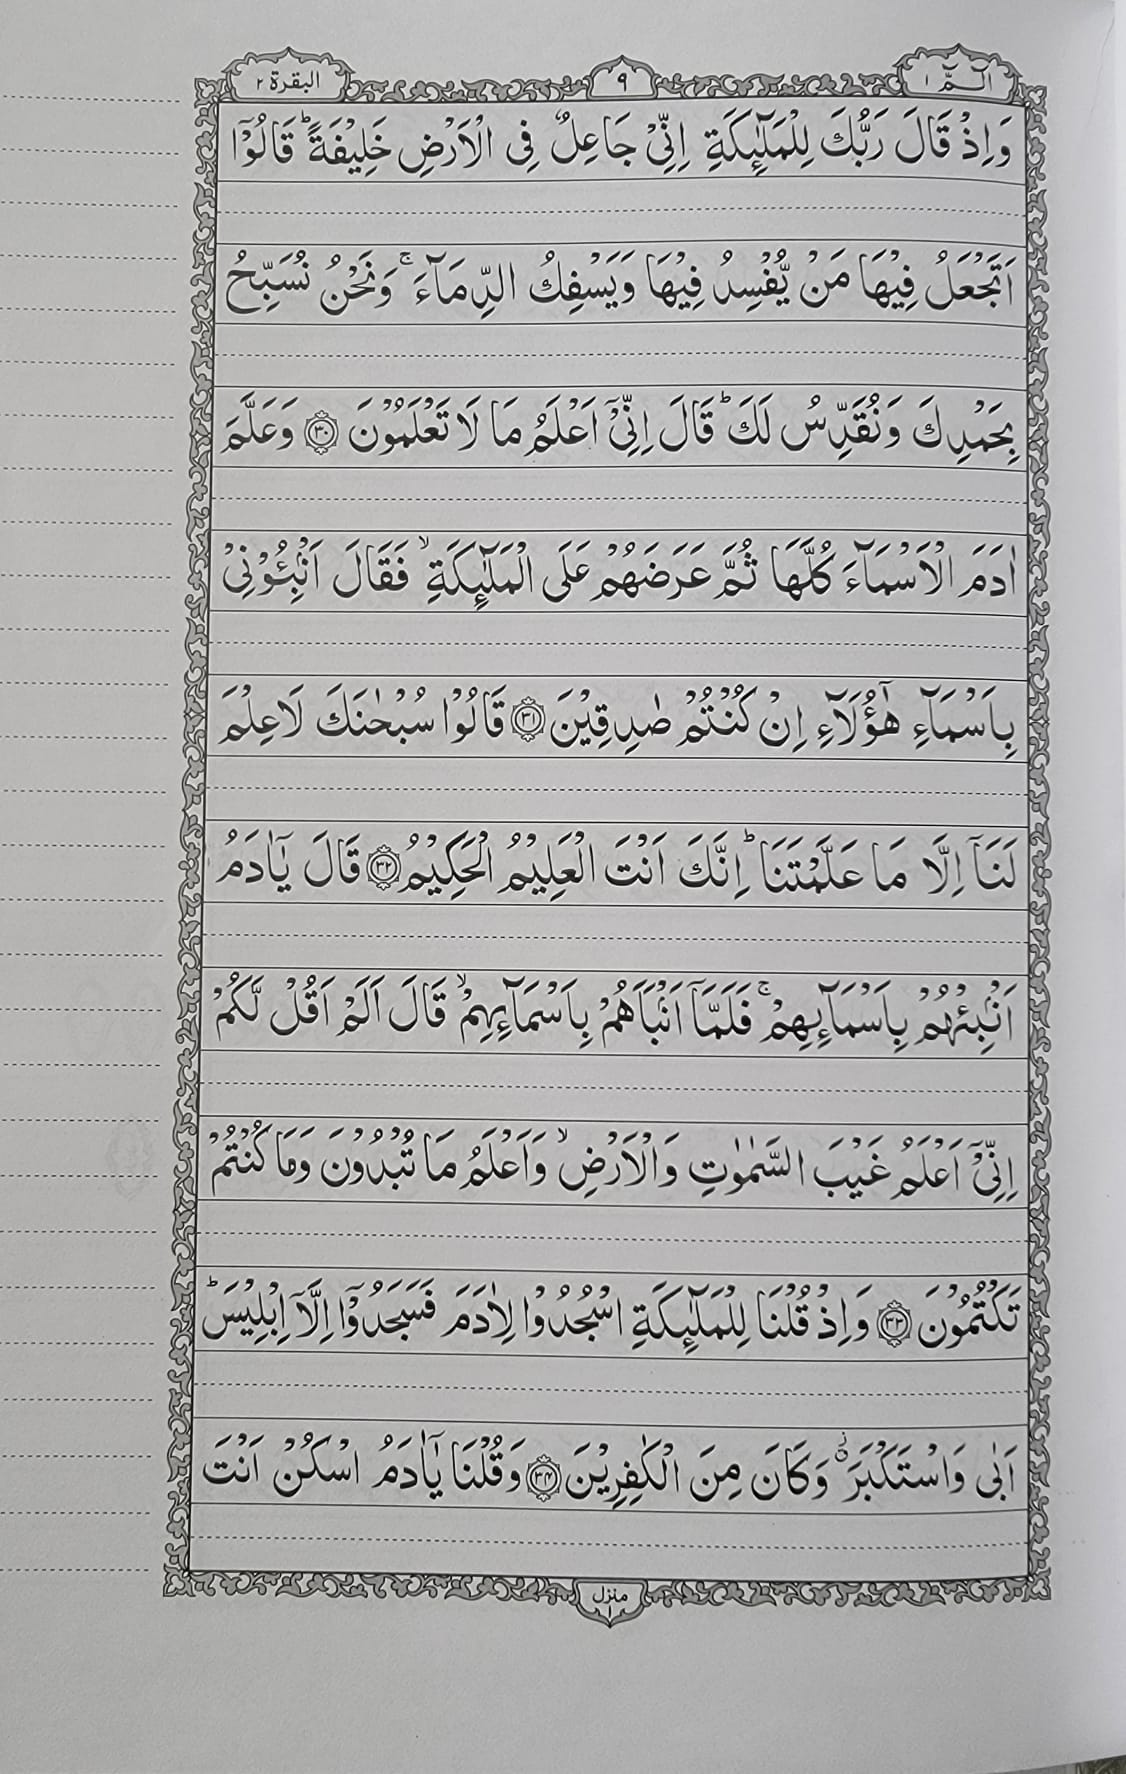 الٓـمّٓ ١
٩
البقرة ٢
وَاِذْ قَالَ رَبُّكَ لِلْمَلٰٓئِكَةِ اِنِّیْ جَاعِلٌ فِی الْاَرْضِ خَلِیْفَةًؕ قَالُوْۤا
اَتَجْعَلُ فِیْهَا مَنْ یُّفْسِدُ فِیْهَا وَیَسْفِكُ الدِّمَآءَۚ وَنَحْنُ نُسَبِّحُ
بِحَمْدِكَ وَنُقَدِّسُ لَكَؕ قَالَ اِنِّیْۤ اَعْلَمُ مَا لَا تَعْلَمُوْنَ ﴿۳۰﴾ وَعَلَّمَ
اٰدَمَ الْاَسْمَآءَ كُلَّهَا ثُمَّ عَرَضَهُمْ عَلَی الْمَلٰٓئِكَةِۙ فَقَالَ اَنْۢبِـُٔوْنِیْ
بِاَسْمَآءِ هٰۤؤُلَآءِ اِنْ كُنْتُمْ صٰدِقِیْنَ ﴿۳۱﴾ قَالُوْا سُبْحٰنَكَ لَا عِلْمَ
لَنَاۤ اِلَّا مَا عَلَّمْتَنَاؕ اِنَّكَ اَنْتَ الْعَلِیْمُ الْحَكِیْمُ ﴿۳۲﴾ قَالَ یٰۤاٰدَمُ
اَنْۢبِئْهُمْ بِاَسْمَآىِٕهِمْۚ فَلَمَّاۤ اَنْۢبَاَهُمْ بِاَسْمَآىِٕهِمْۙ قَالَ اَلَمْ اَقُلْ لَّكُمْ
اِنِّیْۤ اَعْلَمُ غَیْبَ السَّمٰوٰتِ وَالْاَرْضِۙ وَاَعْلَمُ مَا تُبْدُوْنَ وَمَا كُنْتُمْ
تَكْتُمُوْنَ ﴿۳۳﴾ وَاِذْ قُلْنَا لِلْمَلٰٓئِكَةِ اسْجُدُوْا لِاٰدَمَ فَسَجَدُوْۤا اِلَّاۤ اِبْلِیْسَؕ
اَبٰی وَاسْتَكْبَرَ٘ۗ وَكَانَ مِنَ الْكٰفِرِیْنَ ﴿۳۴﴾ وَقُلْنَا یٰۤاٰدَمُ اسْكُنْ اَنْتَ
منزل
١